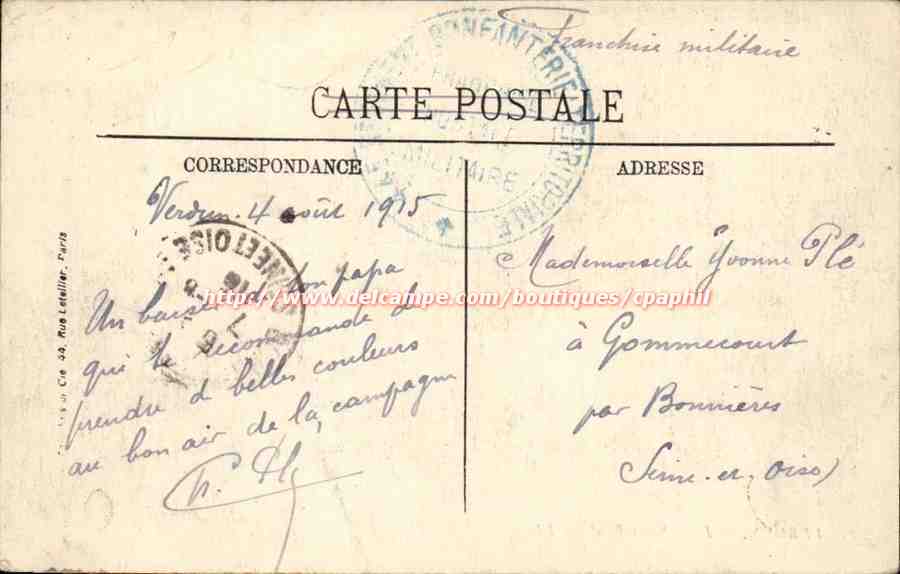 Franchise militaire
D'INFANTERIE TERRITORIALE
POSTALE
MILITAIRE
CARTE POSTALE
CORRESPONDANCE
ADRESSE
Verdun. 4 août 1915
SEINE ET OISE
Un baiser de ton papa
qui te recommande de
prendre d belles couleurs
au bon air de la campagne
Mademoiselle Yvonne Plé
à Gommecourt
par Bonnières
Seine-et-Oise)
Cie 44, Rue Letellier, Paris
http://www.delcampe.com/boutiques/cpaphil